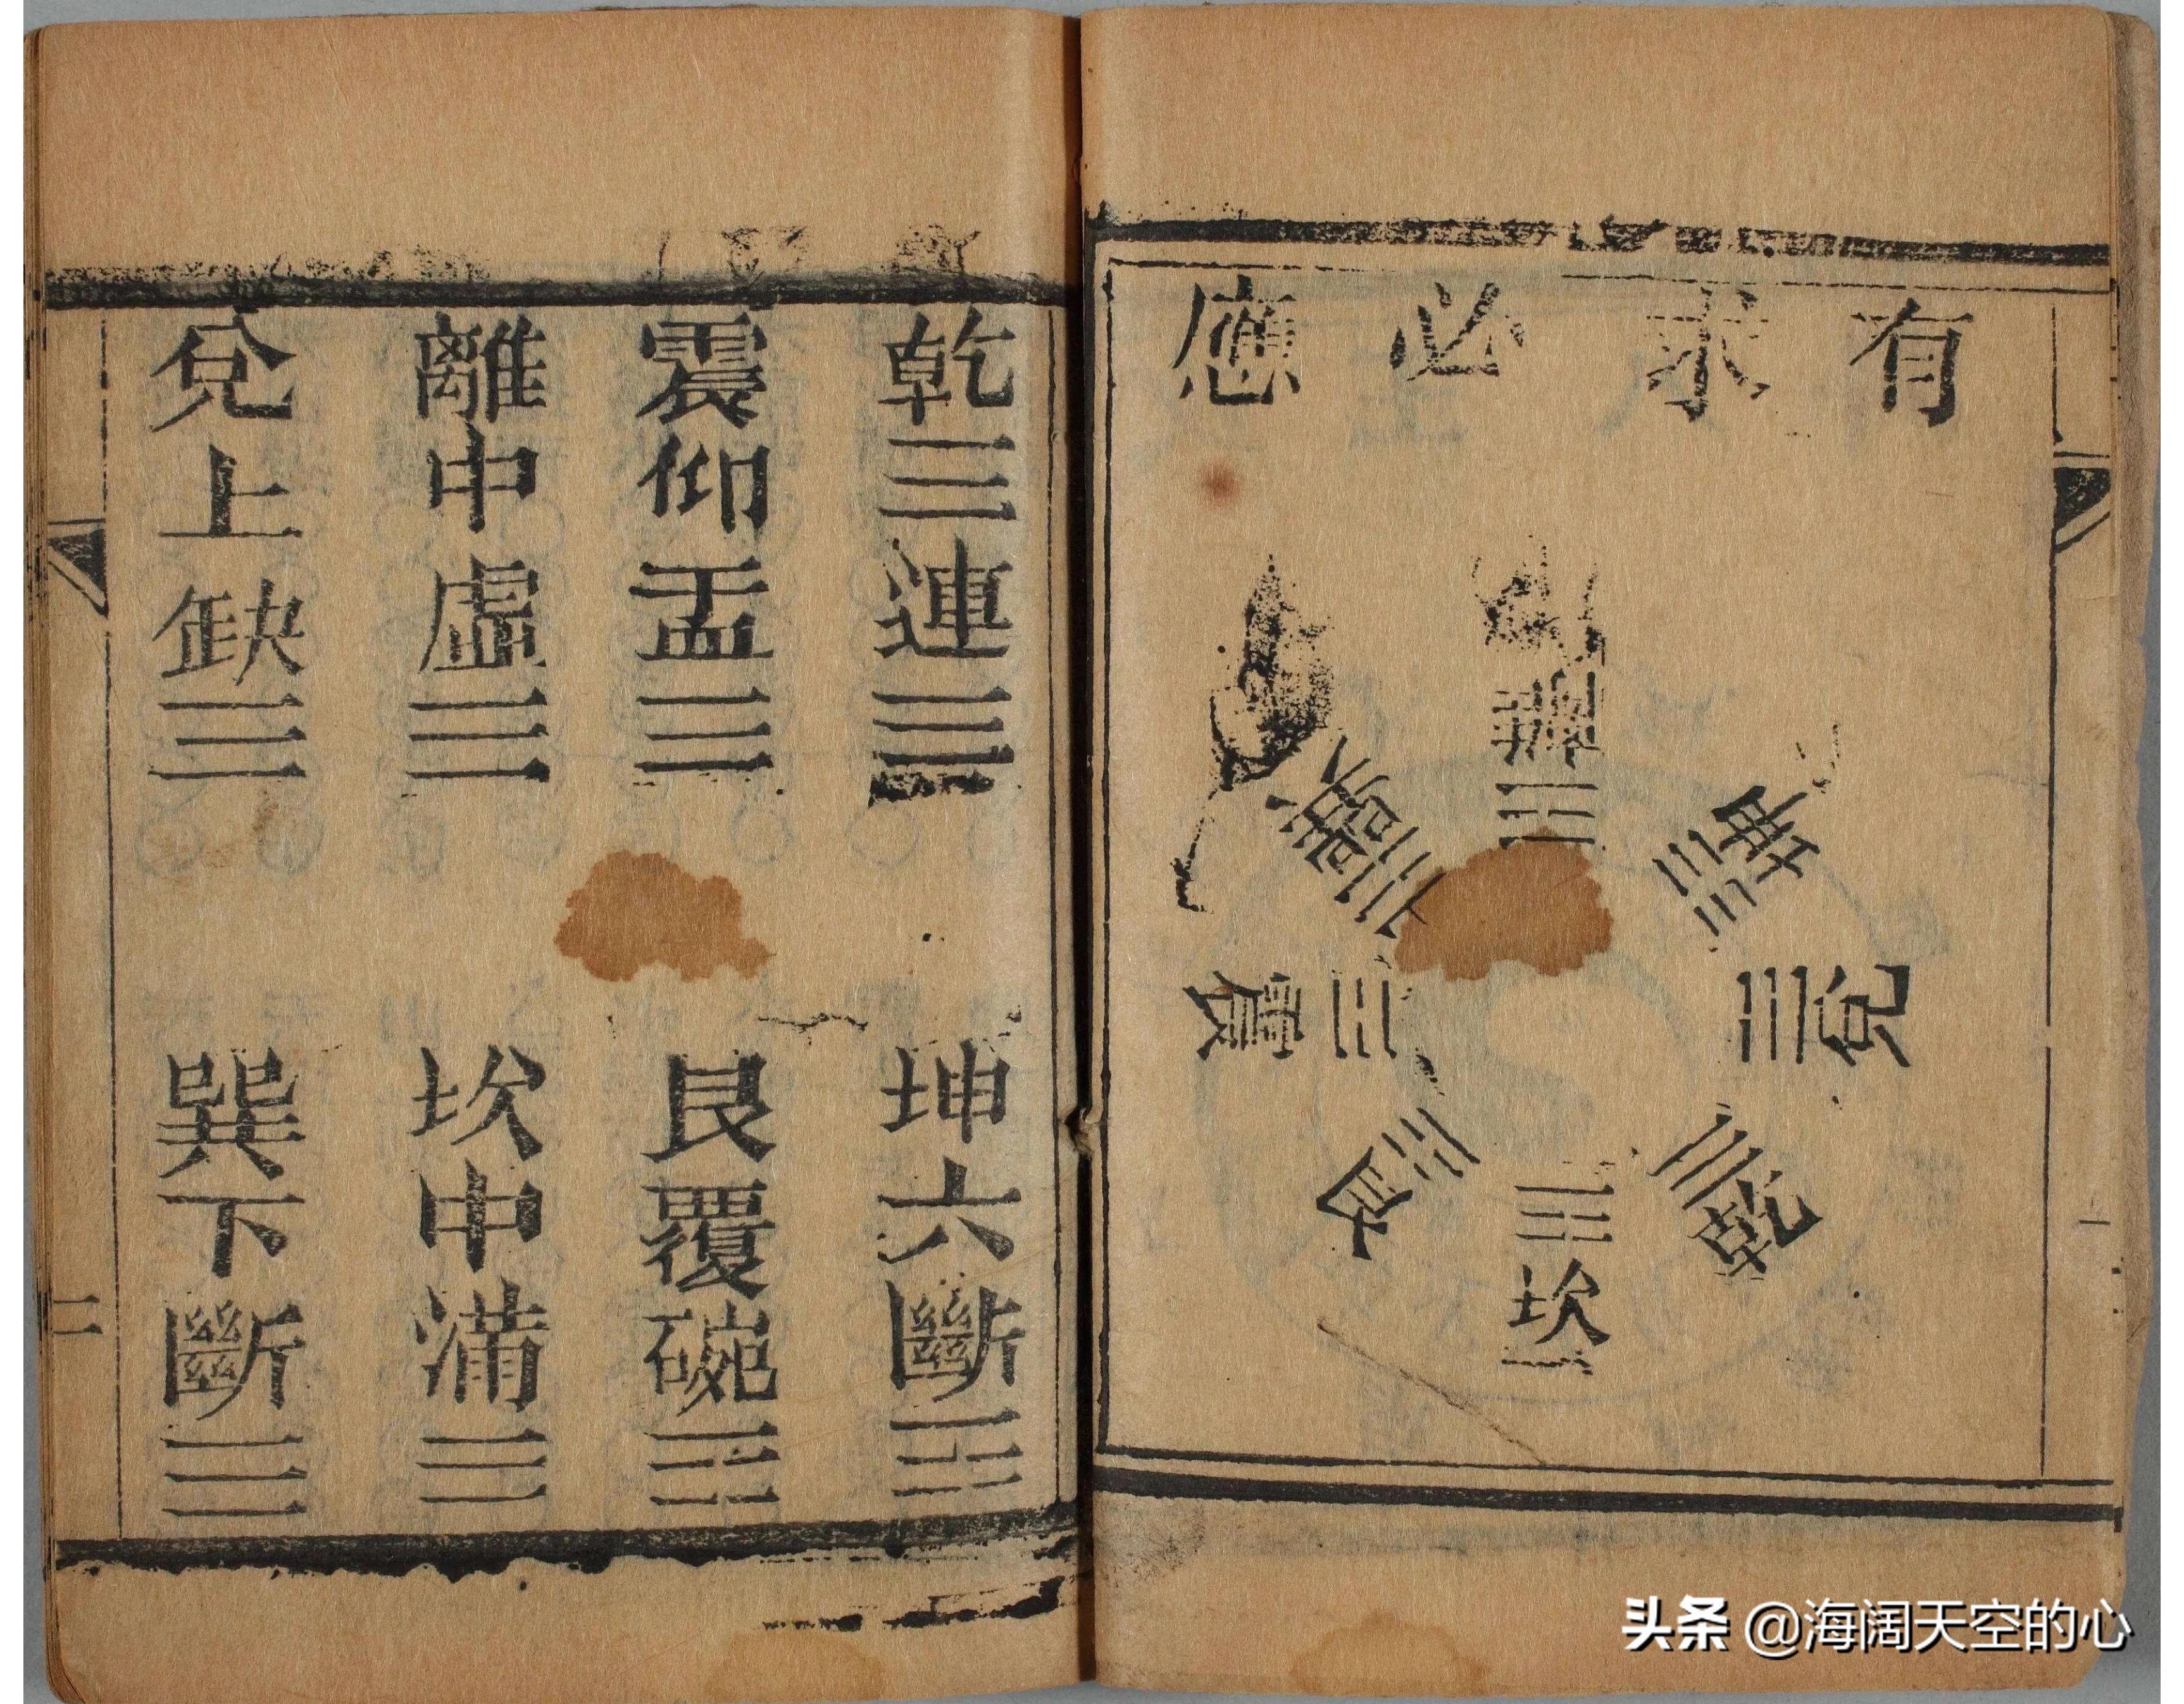 有求必應
離
坤
兌
乾
坎
艮
震
巽
一
乾三連☰
坤六斷☷
震仰盂☳
艮覆碗☶
離中虛☲
坎中滿☵
兌上缺☱
巽下斷☴
二
头条 @海阔天空的心